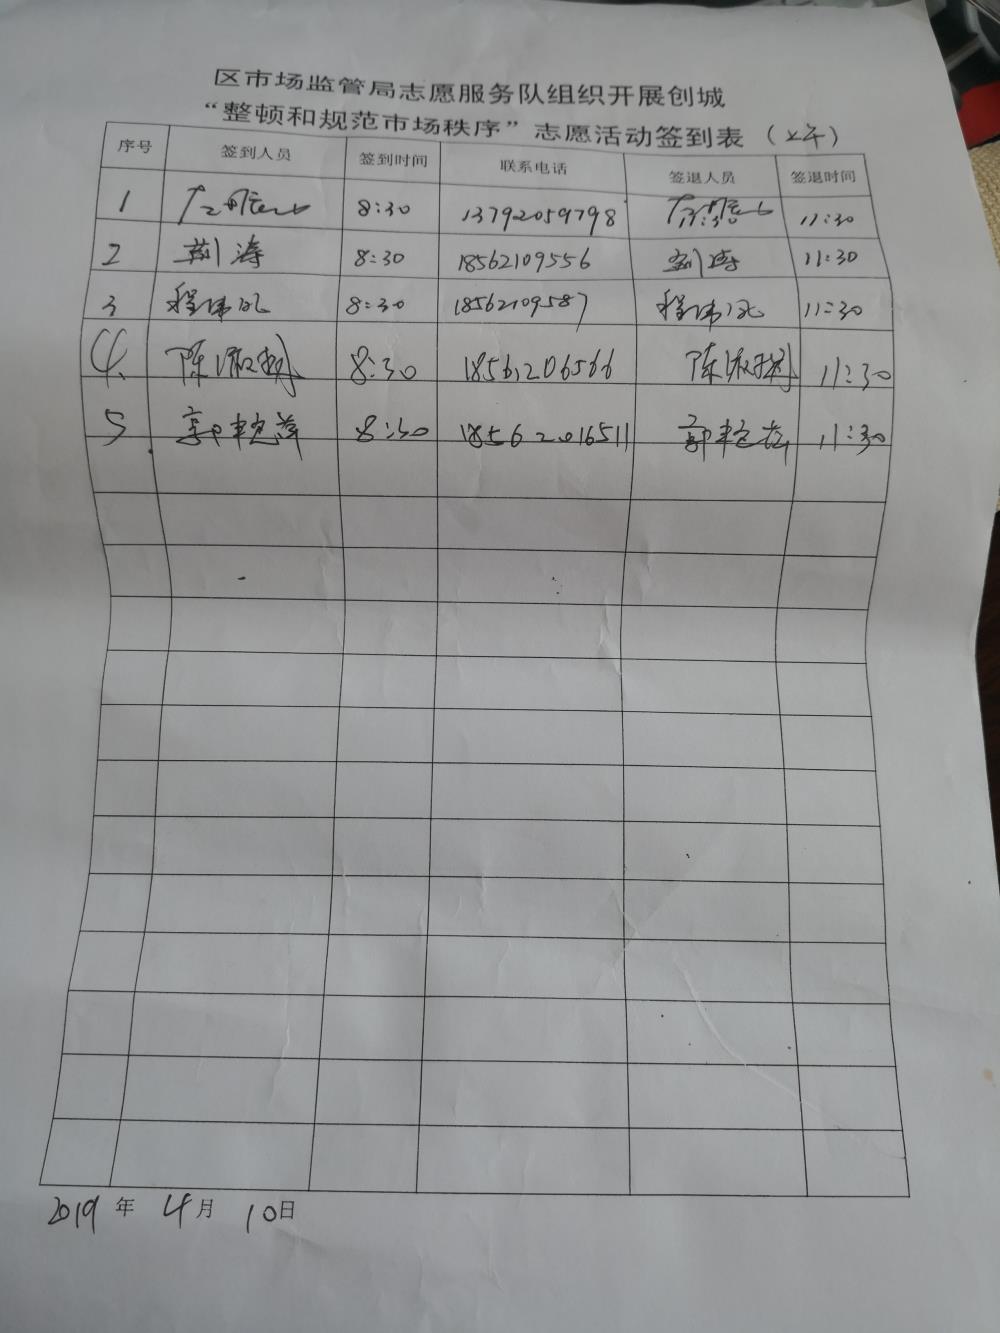 区市场监管局志愿服务队组织开展创城
“整顿和规范市场秩序”志愿活动签到表（上午）
序号 签到人员 签到时间 联系电话 签退人员 签退时间
1 8:30 13792059798 11:30
2 荆涛 8:30 18562109556 荆涛 11:30
3 程伟民 8:30 18562109587 程伟民 11:30
4. 陈淑 8:30 18561206566 陈淑 11:30
5 郭 8:30 18562016511 郭 11:30
2019年4月10日